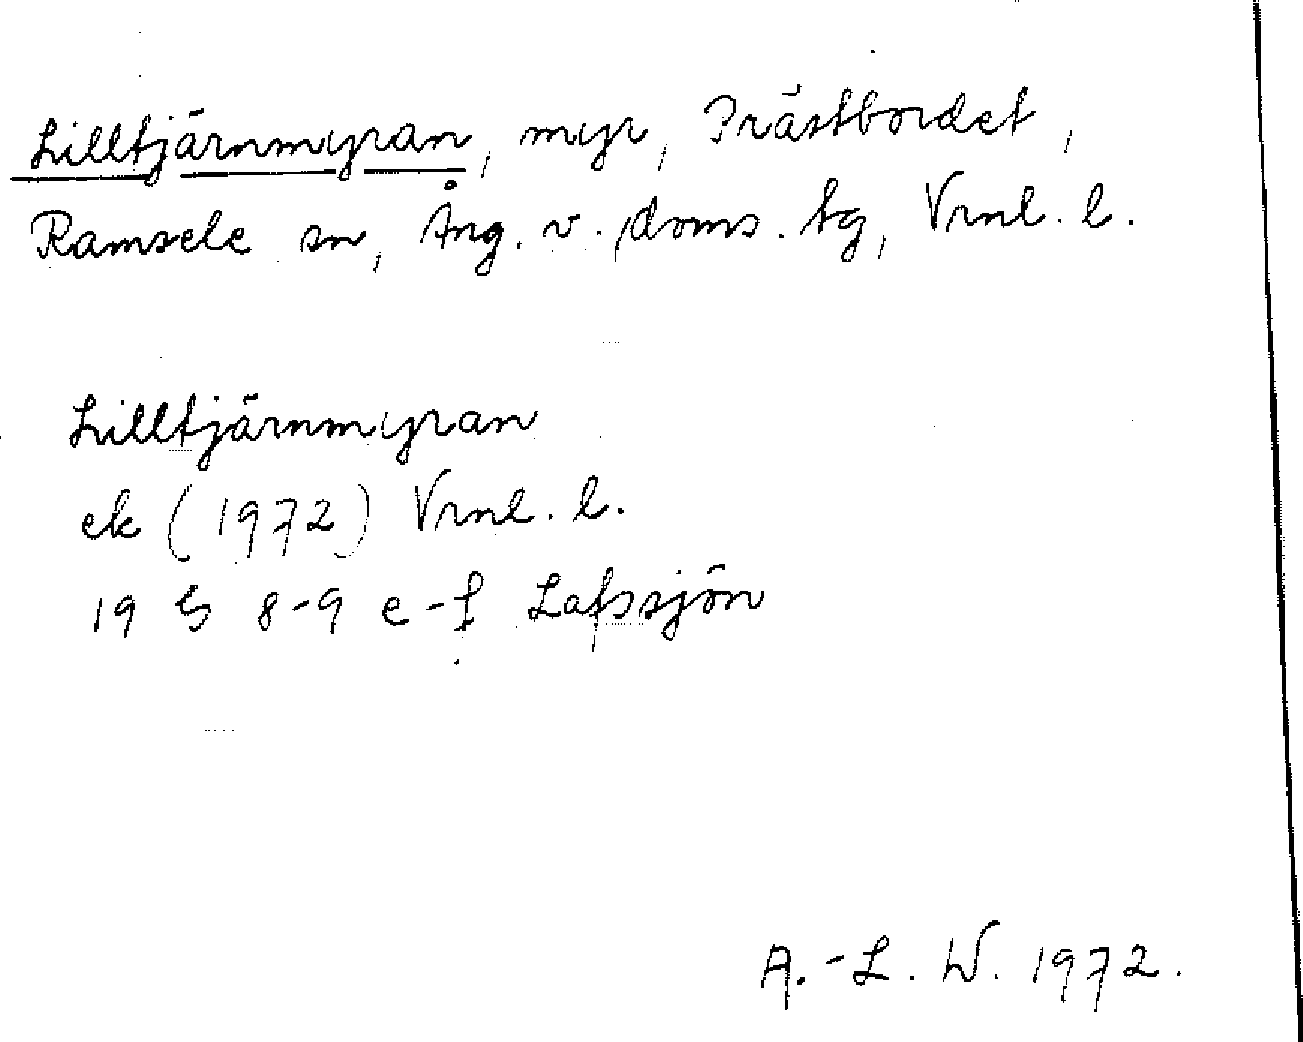 Lilltjärnmyran, myr, Prästbordet,
Ramsele sn, Ång. v. doms. tg, Vrnl. l.
Lilltjärnmyran
ek (1972) Vrnl. l.
19 G 8-9 e-f Lafssjön
A.-L. W. 1972.